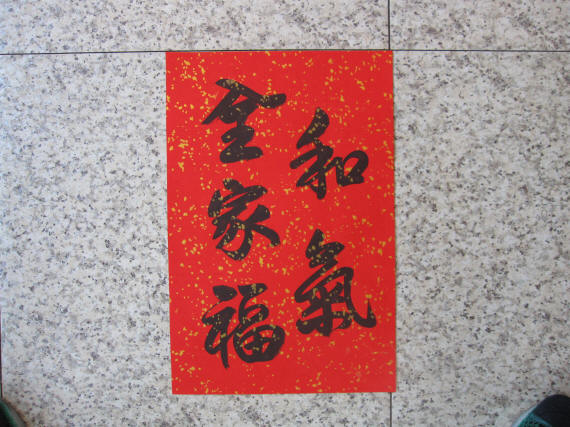 和氣
全家福